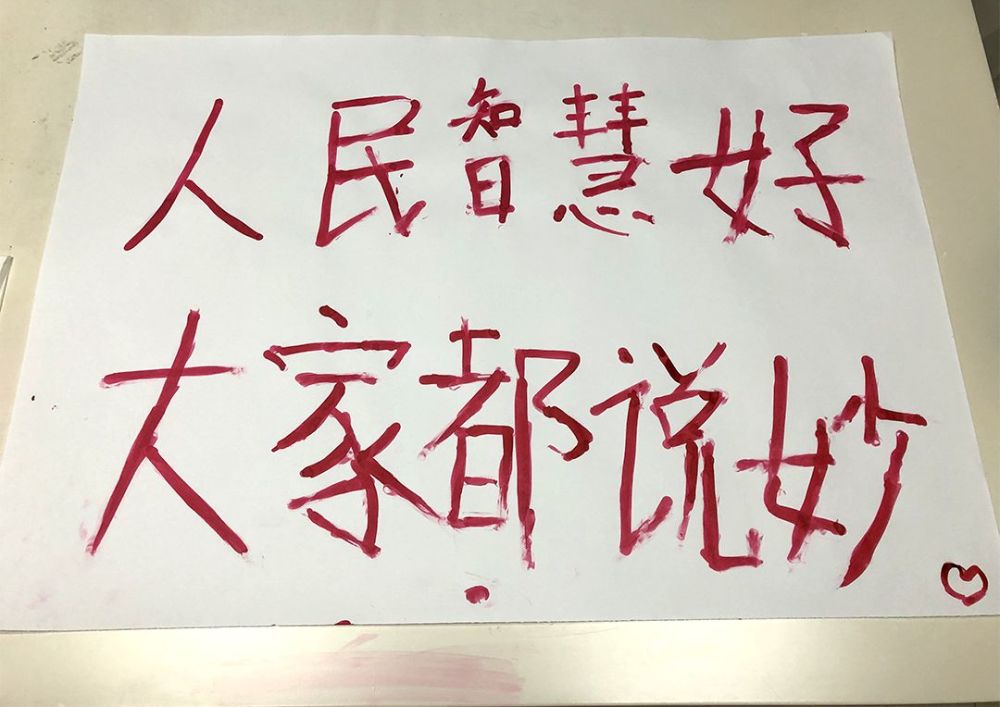 人民智慧好
大家都说妙